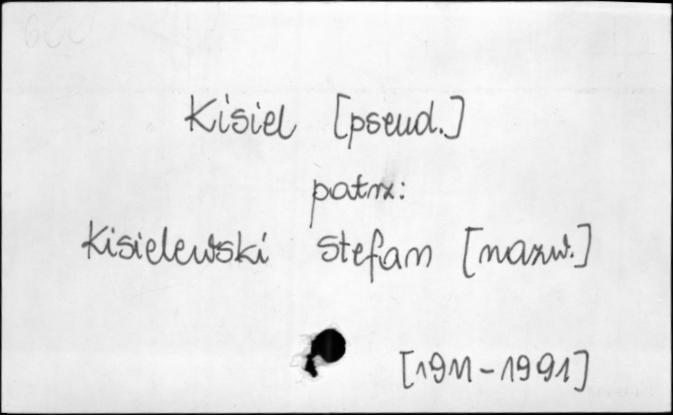 Kisiel [pseud.]
patrz:
Kisielewski Stefan [nazw.]
[1911-1991]